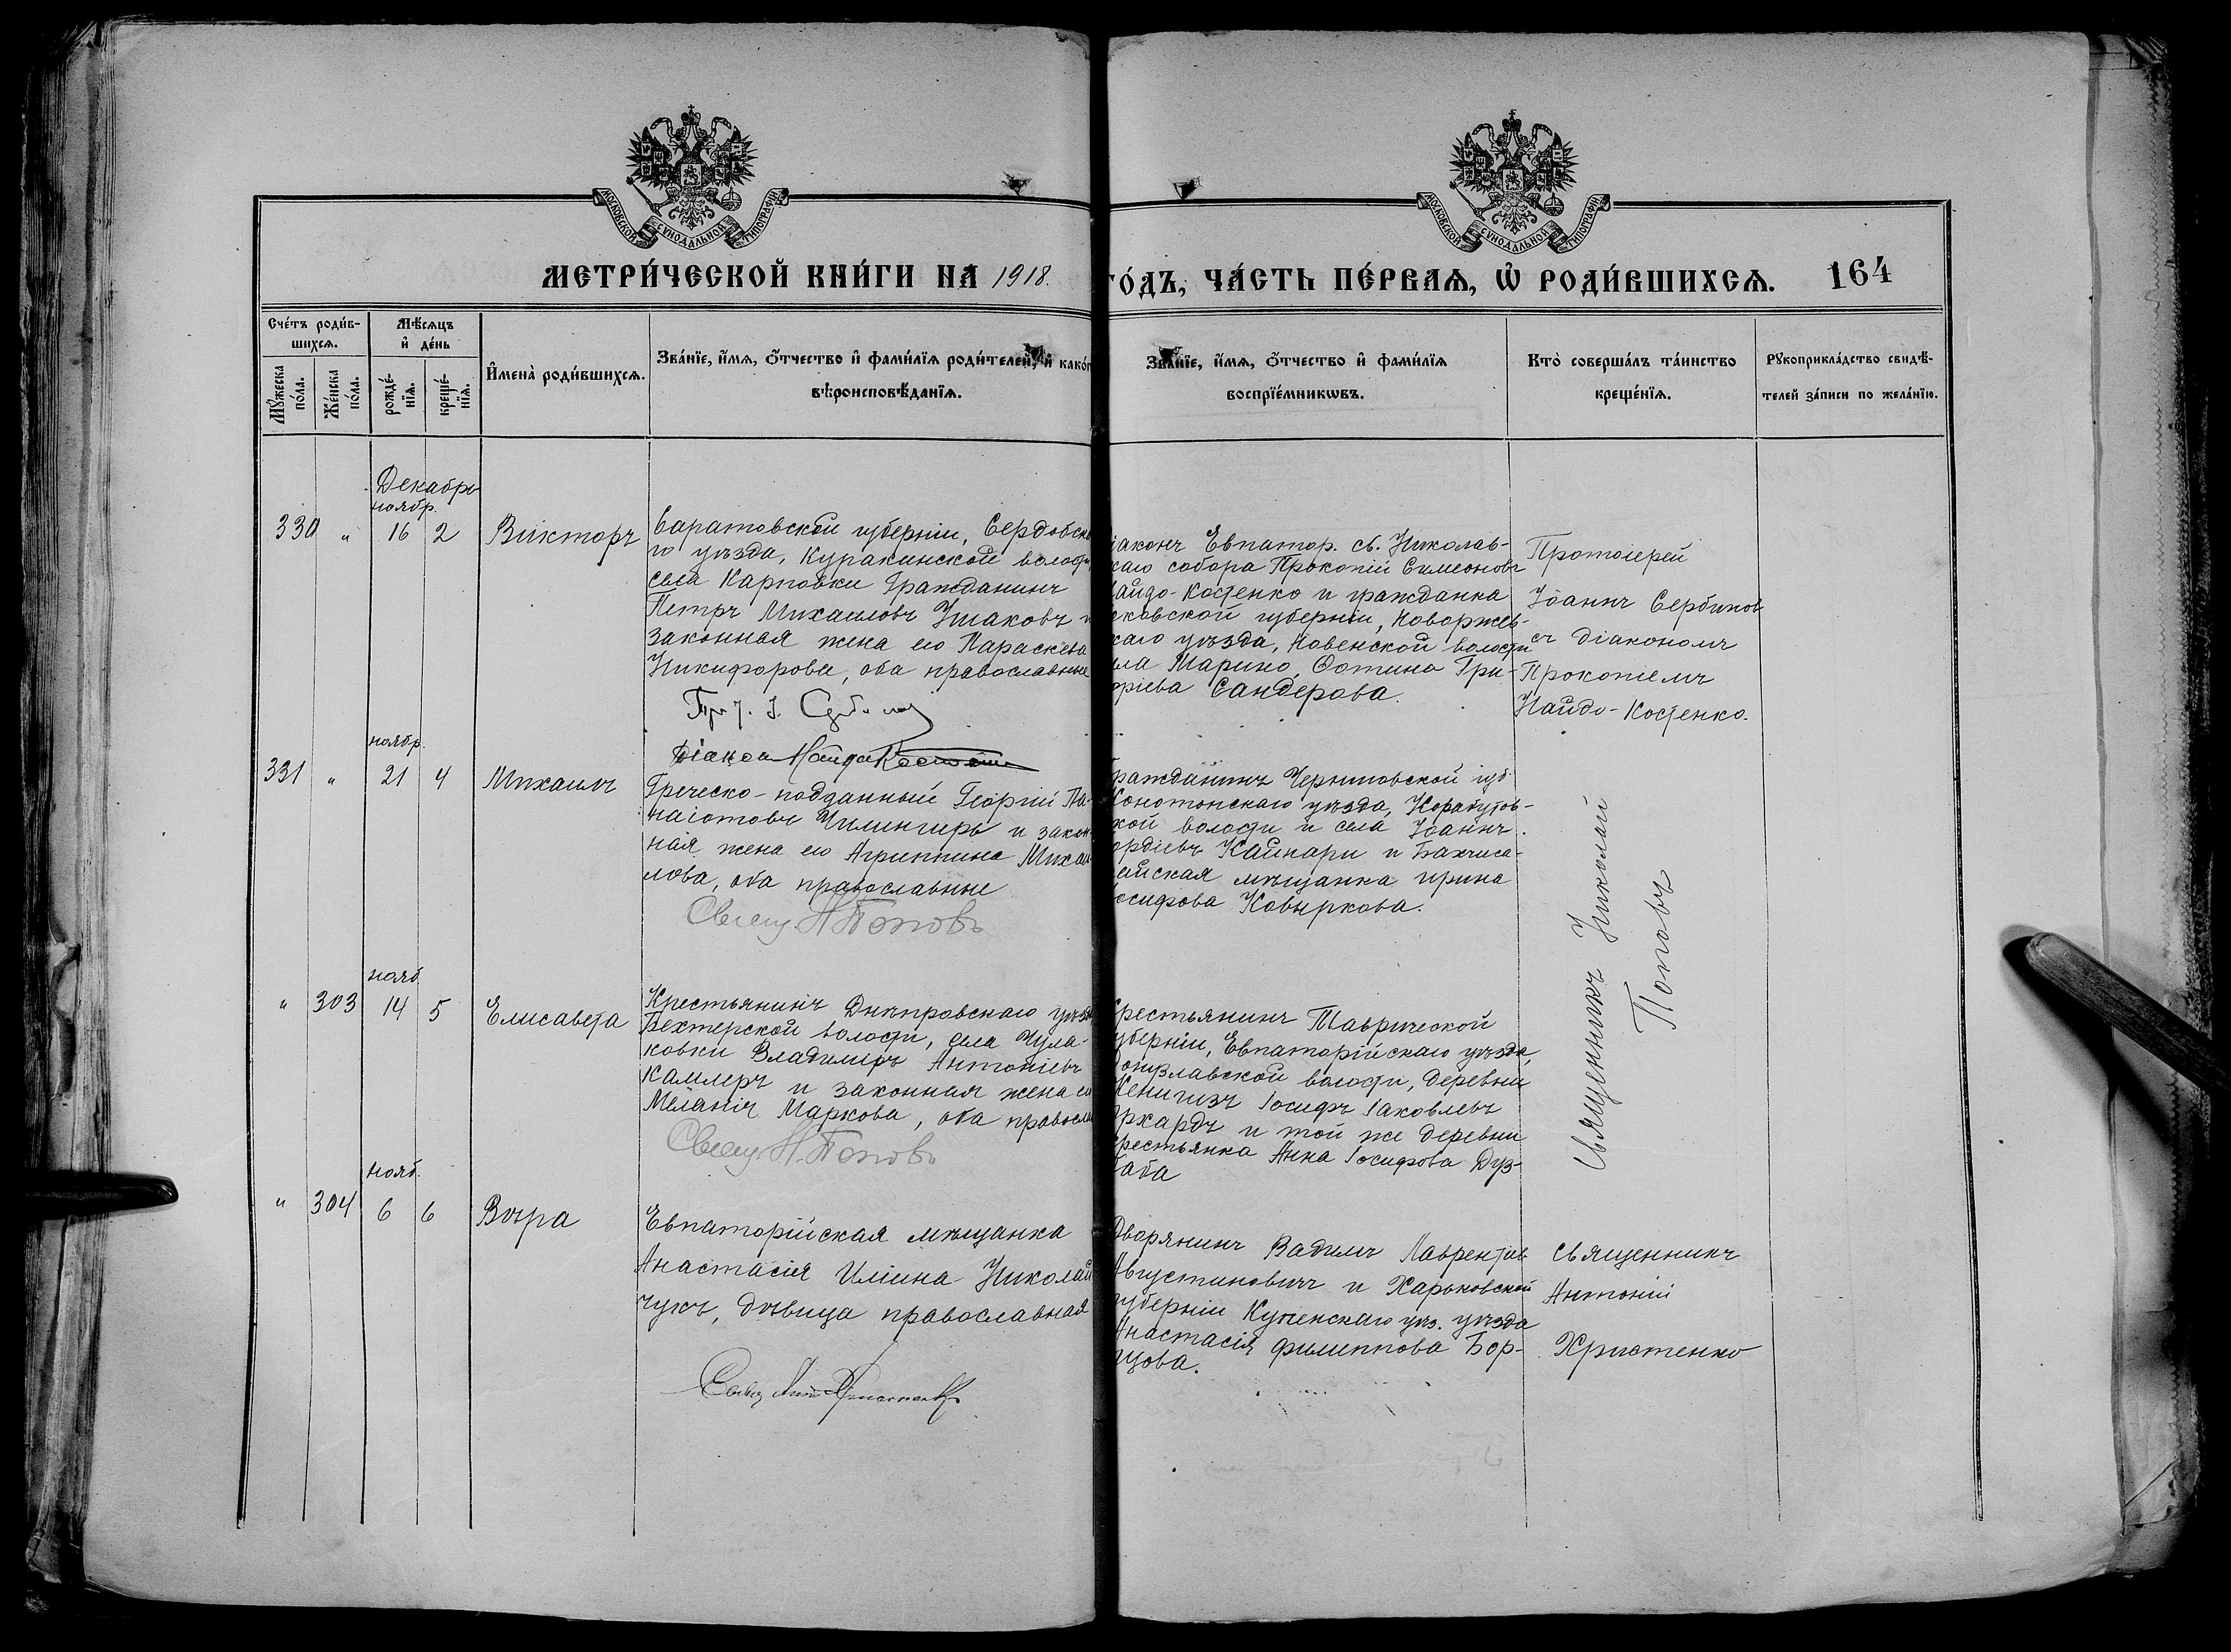 МОСКОВСКОЙ СѴНОДАЛЬНОЙ ТИПОГРАФІИ
МОСКОВСКОЙ СѴНОДАЛЬНОЙ ТИПОГРАФІИ
МЕТРИ́ЧЕСКОЙ КНИ́ГИ НА 1918.
ГО́ДЪ, ЧА́СТЬ ПЕ́РВАѦ, Ѡ҆ РОДИ́ВШИХСѦ. 164
Сче́тъ роди́в-
шихсѧ.
Мꙋ́жеска по́ла.
Же́нска по́ла.
Мѣ́сѧцъ
и҆ де́нь
рожде́-
нїѧ.
креще́-
нїѧ.
И҆мена̀ роди́вшихсѧ.
Зва́нїе, и҆́мѧ, ѻ҆́тчество и҆ фами́лїѧ роди́телей, и҆ како́г
вѣроисповѣ́данїѧ.
Зва́нїе, и҆́мѧ, ѻ҆́тчество и҆ фами́лїѧ
воспрїе́мникѡвъ.
Кто̀ соверша́лъ та́инство
креще́нїѧ.
Рꙋкоприкла́дство свидѣ́-
телей за́писи по жела́нїю.
Декабрь
ноябр.
330 " 16 2 Викторъ
Саратовской губерніи, Сердобска
го уѣзда, Куракинской волости,
села Карповки Гражданинъ
Петръ Михаиловъ Ушаковъ и
законная жена его Параскева
Никифорова, оба православные
Діакон Найда Костенко
іаконъ Евпатор. св. Николав-
каго собора Прокопій Симеоновъ
айдо-Костенко и гражданка
сковской губерніи, Новоржев-
каго уѣзда, Новенской волости
ела Марино, Фотина Гри-
оріева Сандерова.
Протоіерей
Іоаннъ Сербинов
съ діакономъ
Прокопіемъ
Найдо-Костенко.
ноябр.
331 " 21 4 Михаилъ
Греческо-подданный Георгій Па-
наіотовъ Чилингиръ и закон
ная жена его Агриппина Михаи
лова, оба православные
Свящ. Н. Поповъ
ражданинъ Черниговской губ.
Конотопскаго уѣзда, Корабутов-
кой волости и села Іоаннъ
ордіевъ Кайнари и Бахчиса-
айская мѣщанка Ирина
осифова Ковыркова.
Священникъ Николай
Поповъ
нояб
" 303 14 5 Елисавета
Крестьянинъ Днѣпровскаго уѣзд
Бехтерской волости, села Чула-
ковки Владимиръ Антоніевъ
Каллеръ и законная жена ег
Меланія Маркова, оба правосла
Свящ. Н. Поповъ
рестьянинъ Таврической
уберніи, Евпаторійскаго уѣзда,
онузлавской волости, деревни
Кенигизъ Іосифъ Іаковлевъ
рхардъ и той же деревни
рестьянка Анна Іосифова Дуз-
баба
нояб.
" 304 6 6 Вѣра
Евпаторійская мѣщанка
Анастасія Иліина Николай
чукъ, дѣвица православная
Дворянинъ Вадимъ Лаврентіев
Августиновичъ и Харьковской
губерніи Купенскаго уѣз. уѣзда
Анастасія Филиппова Бор-
цова.
Священникъ
Антоній
Христенко